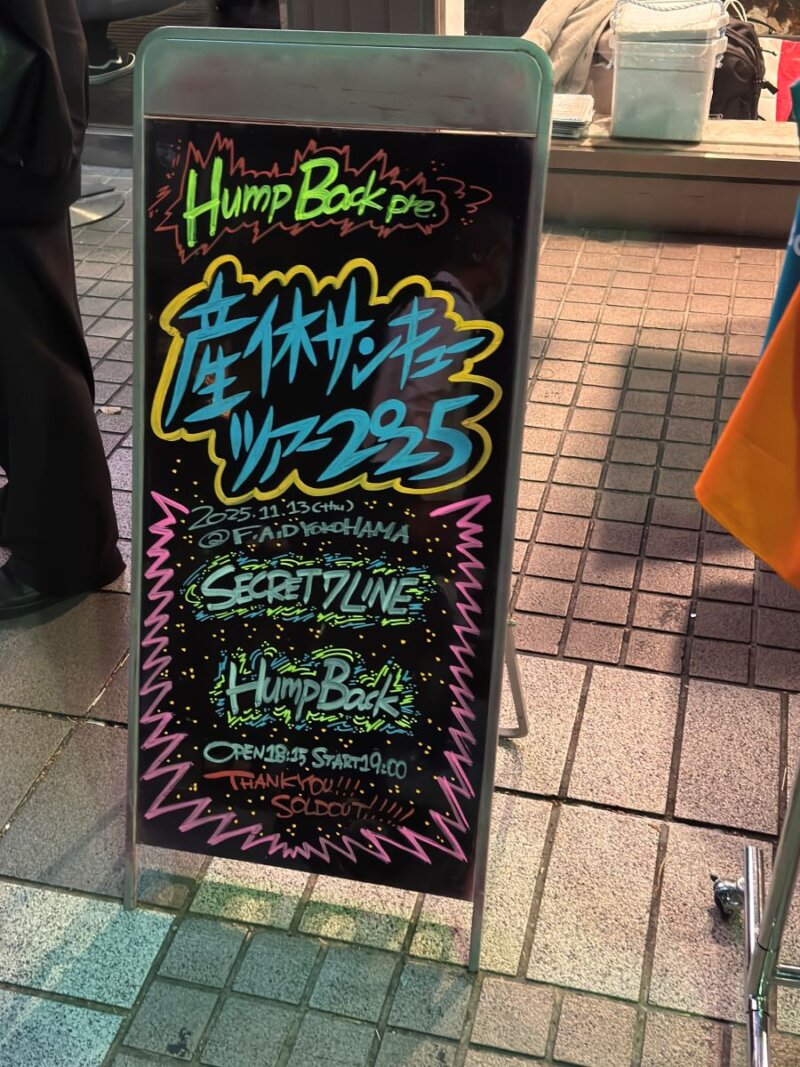 Hump Back pre.
産休サンキュー
ツアー2025
2025.11.13(thu)
@F.A.D YOKOHAMA
SECRET 7 LINE
Hump Back
OPEN 18:15 START 19:00
THANK YOU!!!
SOLDOUT!!!!!